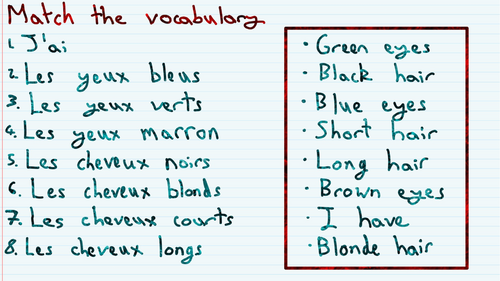 Match the vocabulary
1. J'ai
2. Les yeux bleus
3. Les yeux verts
4. Les yeux marron
5. Les cheveux noirs
6. Les cheveux blonds
7. Les cheveux courts
8. Les cheveux longs
• Green eyes
• Black hair
• Blue eyes
• Short hair
• Long hair
• Brown eyes
• I have
• Blonde hair